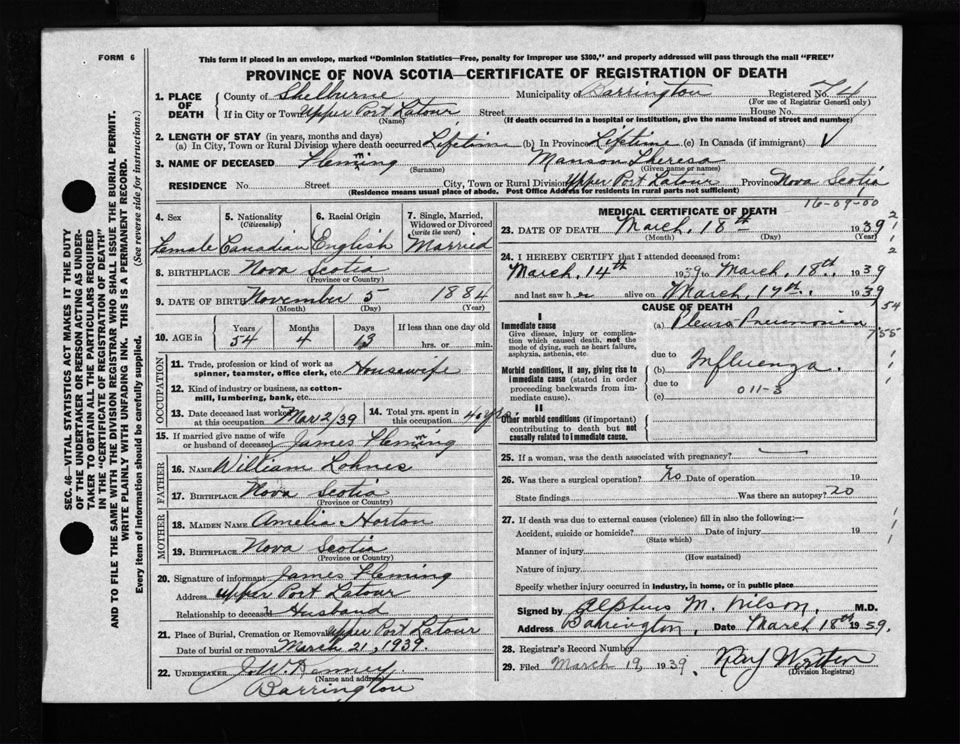 FORM 6
This form if placed in an envelope, marked "Dominion Statistics—Free, penalty for improper use $300," and properly addressed will pass through the mail "FREE"
PROVINCE OF NOVA SCOTIA—CERTIFICATE OF REGISTRATION OF DEATH
1. PLACE OF DEATH
County of Shelburne Municipality of Barrington Registered No. 74
(For use of Registrar General only)
If in City or Town Upper Port Latour Street House No.
(Name) (If death occurred in a hospital or institution, give the name instead of street and number)
2. LENGTH OF STAY (in years, months and days)
(a) In City, Town or Rural Division where death occurred Lifetime (b) In Province Lifetime (c) In Canada (if immigrant)
3. NAME OF DECEASED Fleming Manson Theresa
(Surname) (Given name or names)
RESIDENCE No. Street City, Town or Rural Division Upper Port Latour Province Nova Scotia
(Residence means usual place of abode. Post Office Address for residents in rural parts not sufficient)
16-09-00
4. Sex 5. Nationality 6. Racial Origin 7. Single, Married,
(Citizenship) Widowed or Divorced
(write the word)
Female Canadian English Married
8. BIRTHPLACE Nova Scotia
(Province or Country)
9. DATE OF BIRTH November 5 1884
(Month) (Day) (Year)
10. AGE in Years Months Days If less than one day old
54 4 13 hrs. or min.
OCCUPATION
11. Trade, profession or kind of work as
spinner, teamster, office clerk, etc. Housewife
12. Kind of industry or business, as cotton-
mill, lumbering, bank, etc.
13. Date deceased last worked
at this occupation Mar 2/39
14. Total yrs. spent in
this occupation 40 yrs.
15. If married give name of wife
or husband of deceased James Fleming
FATHER
16. NAME William Lohnes
17. BIRTHPLACE Nova Scotia
(Province or Country)
MOTHER
18. MAIDEN NAME Amelia Horton
19. BIRTHPLACE Nova Scotia
(Province or Country)
20. Signature of informant James Fleming
Address Upper Port Latour
Relationship to deceased Husband
21. Place of Burial, Cremation or Removal Upper Port Latour
Date of burial or removal March 21, 1939.
22. UNDERTAKER J. W. Kenney
(Name and address)
Barrington
MEDICAL CERTIFICATE OF DEATH
23. DATE OF DEATH March, 18th 1939
(Month) (Day) (Year)
24. I HEREBY CERTIFY that I attended deceased from:
March, 14th 1939 to March, 18th. 1939
and last saw her alive on March, 17th. 1939
CAUSE OF DEATH
I
Immediate cause
Give disease, injury or complication which caused death, not the mode of dying, such as heart failure, asphyxia, asthenia, etc.
(a) Pleuro Pneumonia
due to
Morbid conditions, if any, giving rise to immediate cause (stated in order proceeding backwards from immediate cause).
(b) Influenza.
due to
(c) 011-3
II
Other morbid conditions (if important) contributing to death but not causally related to immediate cause.
25. If a woman, was the death associated with pregnancy?
26. Was there a surgical operation? No Date of operation 19
State findings Was there an autopsy? No
27. If death was due to external causes (violence) fill in also the following:—
Accident, suicide or homicide? Date of injury 19
(State which)
Manner of injury
(How sustained)
Nature of injury
Specify whether injury occurred in industry, in home, or in public place
Signed by Alpheus M. Wilson, M.D.
Address Barrington, Date March 18th 1959.
28. Registrar's Record Number
29. Filed March 19, 1939.
(Division Registrar)
SEC. 46—VITAL STATISTICS ACT MAKES IT THE DUTY
OF THE UNDERTAKER OR PERSON ACTING AS UNDER-
TAKER TO OBTAIN ALL THE PARTICULARS REQUIRED
IN THE "CERTIFICATE OF REGISTRATION OF DEATH"
AND TO FILE THE SAME WITH THE DIVISION REGISTRAR WHO SHALL ISSUE THE BURIAL PERMIT.
WRITE PLAINLY WITH UNFADING INK. THIS IS A PERMANENT RECORD.
Every item of information should be carefully supplied. (See reverse side for instructions.)